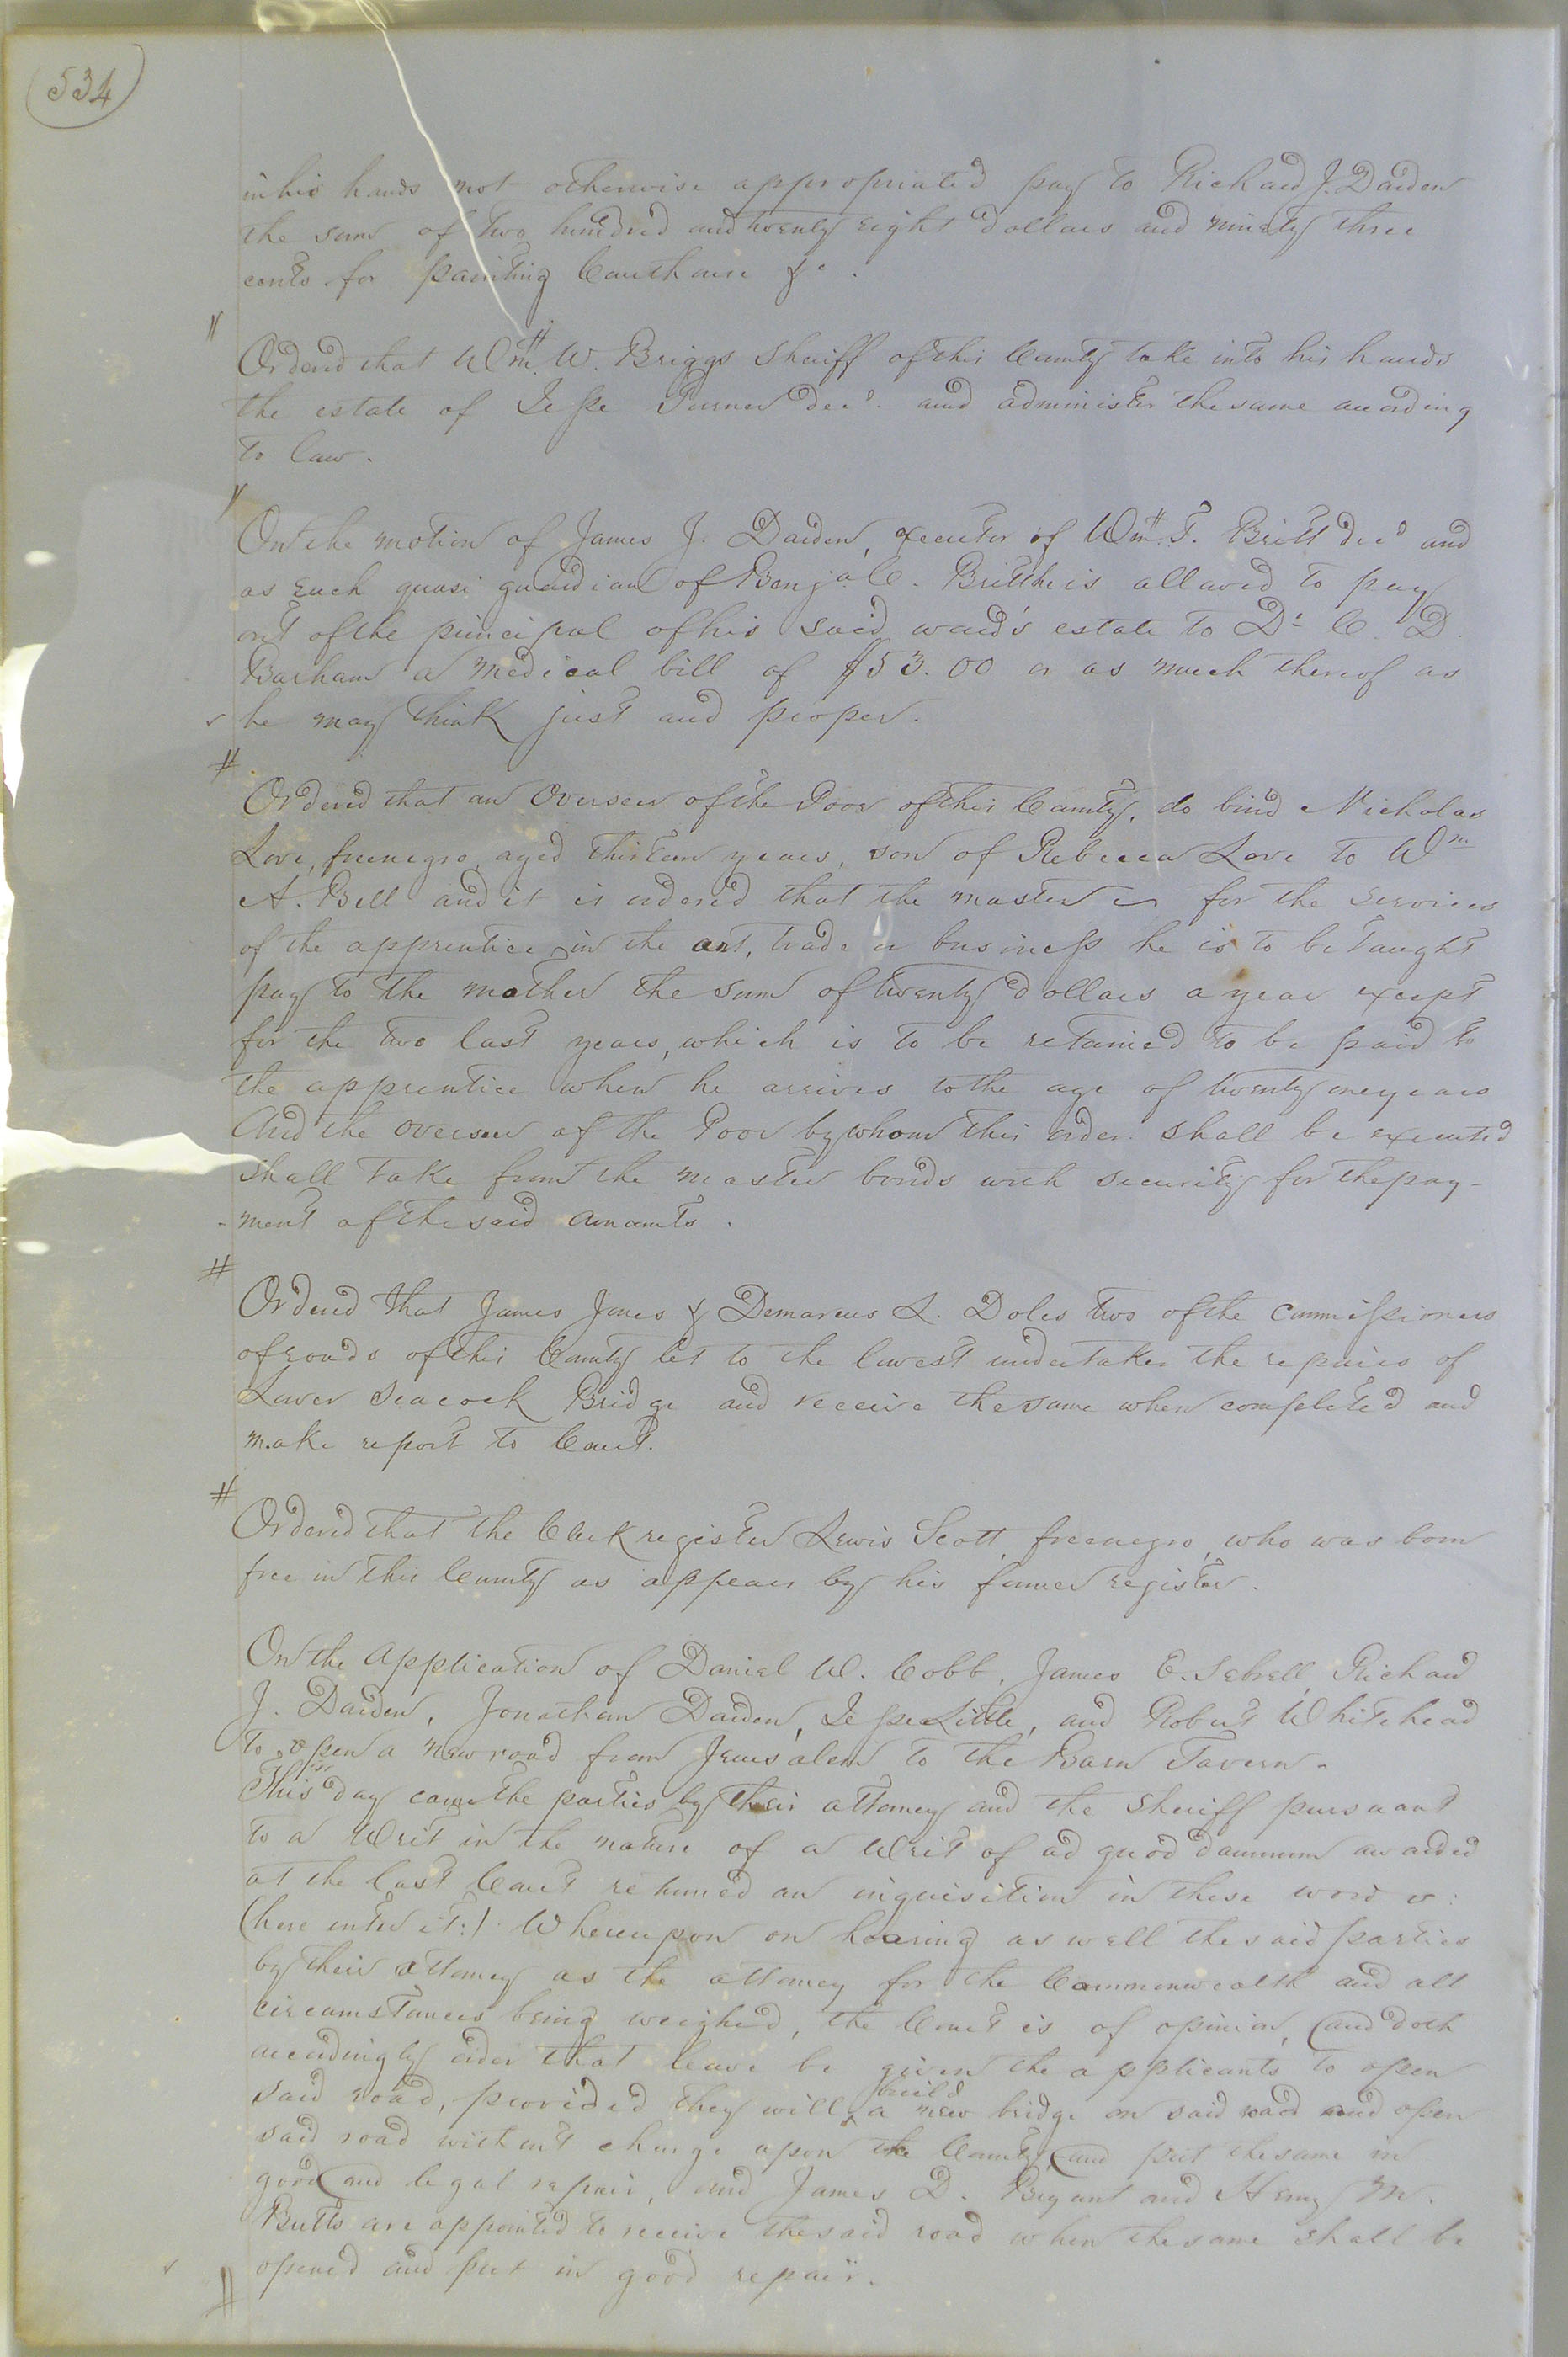 534
in his hands not otherwise appropriated pay to Richard J. Darden
the sum of two hundred and twenty eight dollars and ninety three
cents for painting Courthouse &c.
Ordered that Wm. W. Briggs Sheriff of this County take into his hands
the estate of Jesse Turner decd. and administer the same according
to law.
On the motion of James J. Darden, executor of Wm. T. Britt decd and
as such quasi guardian of Benja. C. Britt he is allowed to pay
out of the principal of his said ward's estate to Dr. C. D.
Barham a medical bill of $53.00 or as much thereof as
he may think just and proper.
Ordered that an Overseer of the Poor of this County, do bind Nicholas
Love, free negro, aged thirteen years, son of Rebecca Love to Wm
A. Bell and it is ordered that the master for the services
of the apprentice in the art, trade or business he is to be taught
pay to the mother the sum of twenty dollars a year except
for the two last years, which is to be retained to be paid to
the apprentice when he arrives to the age of twenty one years
And the overseer of the Poor by whom this order shall be executed
shall take from the master bonds with security for the pay-
-ment of the said amounts.
Ordered that James Jones & Demarcus L. Doles two of the commissioners
of roads of this County let to the lowest undertaker the repairs of
Lower Seacock Bridge and receive the same when completed and
make report to Court.
Ordered that the Clerk register Lewis Scott, free negro, who was born
free in this County as appears by his former register.
On the application of Daniel W. Cobb, James E. Sebrell, Richard
J. Darden, Jonathan Darden, Jesse Little, and Robert Whitehead
to open a new road from Jerusalem to the Barn Tavern.
This day came the parties by their attorney and the sheriff pursuant
to a Writ in the nature of a Writ of ad quod damnum awarded
at the last Court returned an inquisition in these words:
(here enter it:) Whereupon on hearing as well the said parties
by their attorney as the attorney for the Commonwealth and all
circumstances being weighed, the Court is of opinion, and doth
accordingly order that leave be given the applicants to open
said road, provided they will build a new bridge on said road and open
said road without charge upon the County, and put the same in
good and legal repair, and James D. Bryant and Henry M.
Butts are appointed to receive the said road when the same shall be
opened and put in good repair.